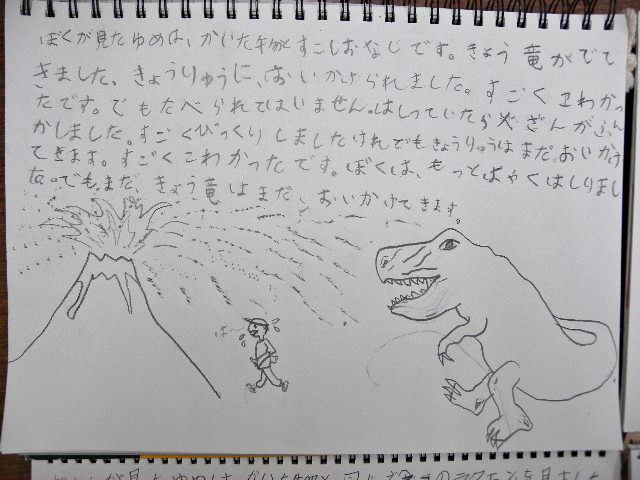 ぼくが見たゆめは、かいた物とすこしおなじです。きょう竜がでて
きました、きょうりゅうに、おいかけられました。すごくこわかっ
たです。でもたべられてはいません。はしっていたら火ざんがふん
かしました。すごくびっくりしましたけれでもきょうりゅうはまだ。おいかけ
てきます。すごくこわかったです。ぼくは、もっとはやくはしりまし
た。でも、まだ、きょう竜はまだ、おいかけてきます。
は〜
が見たゆめは、かいた物と同じで
を見ました